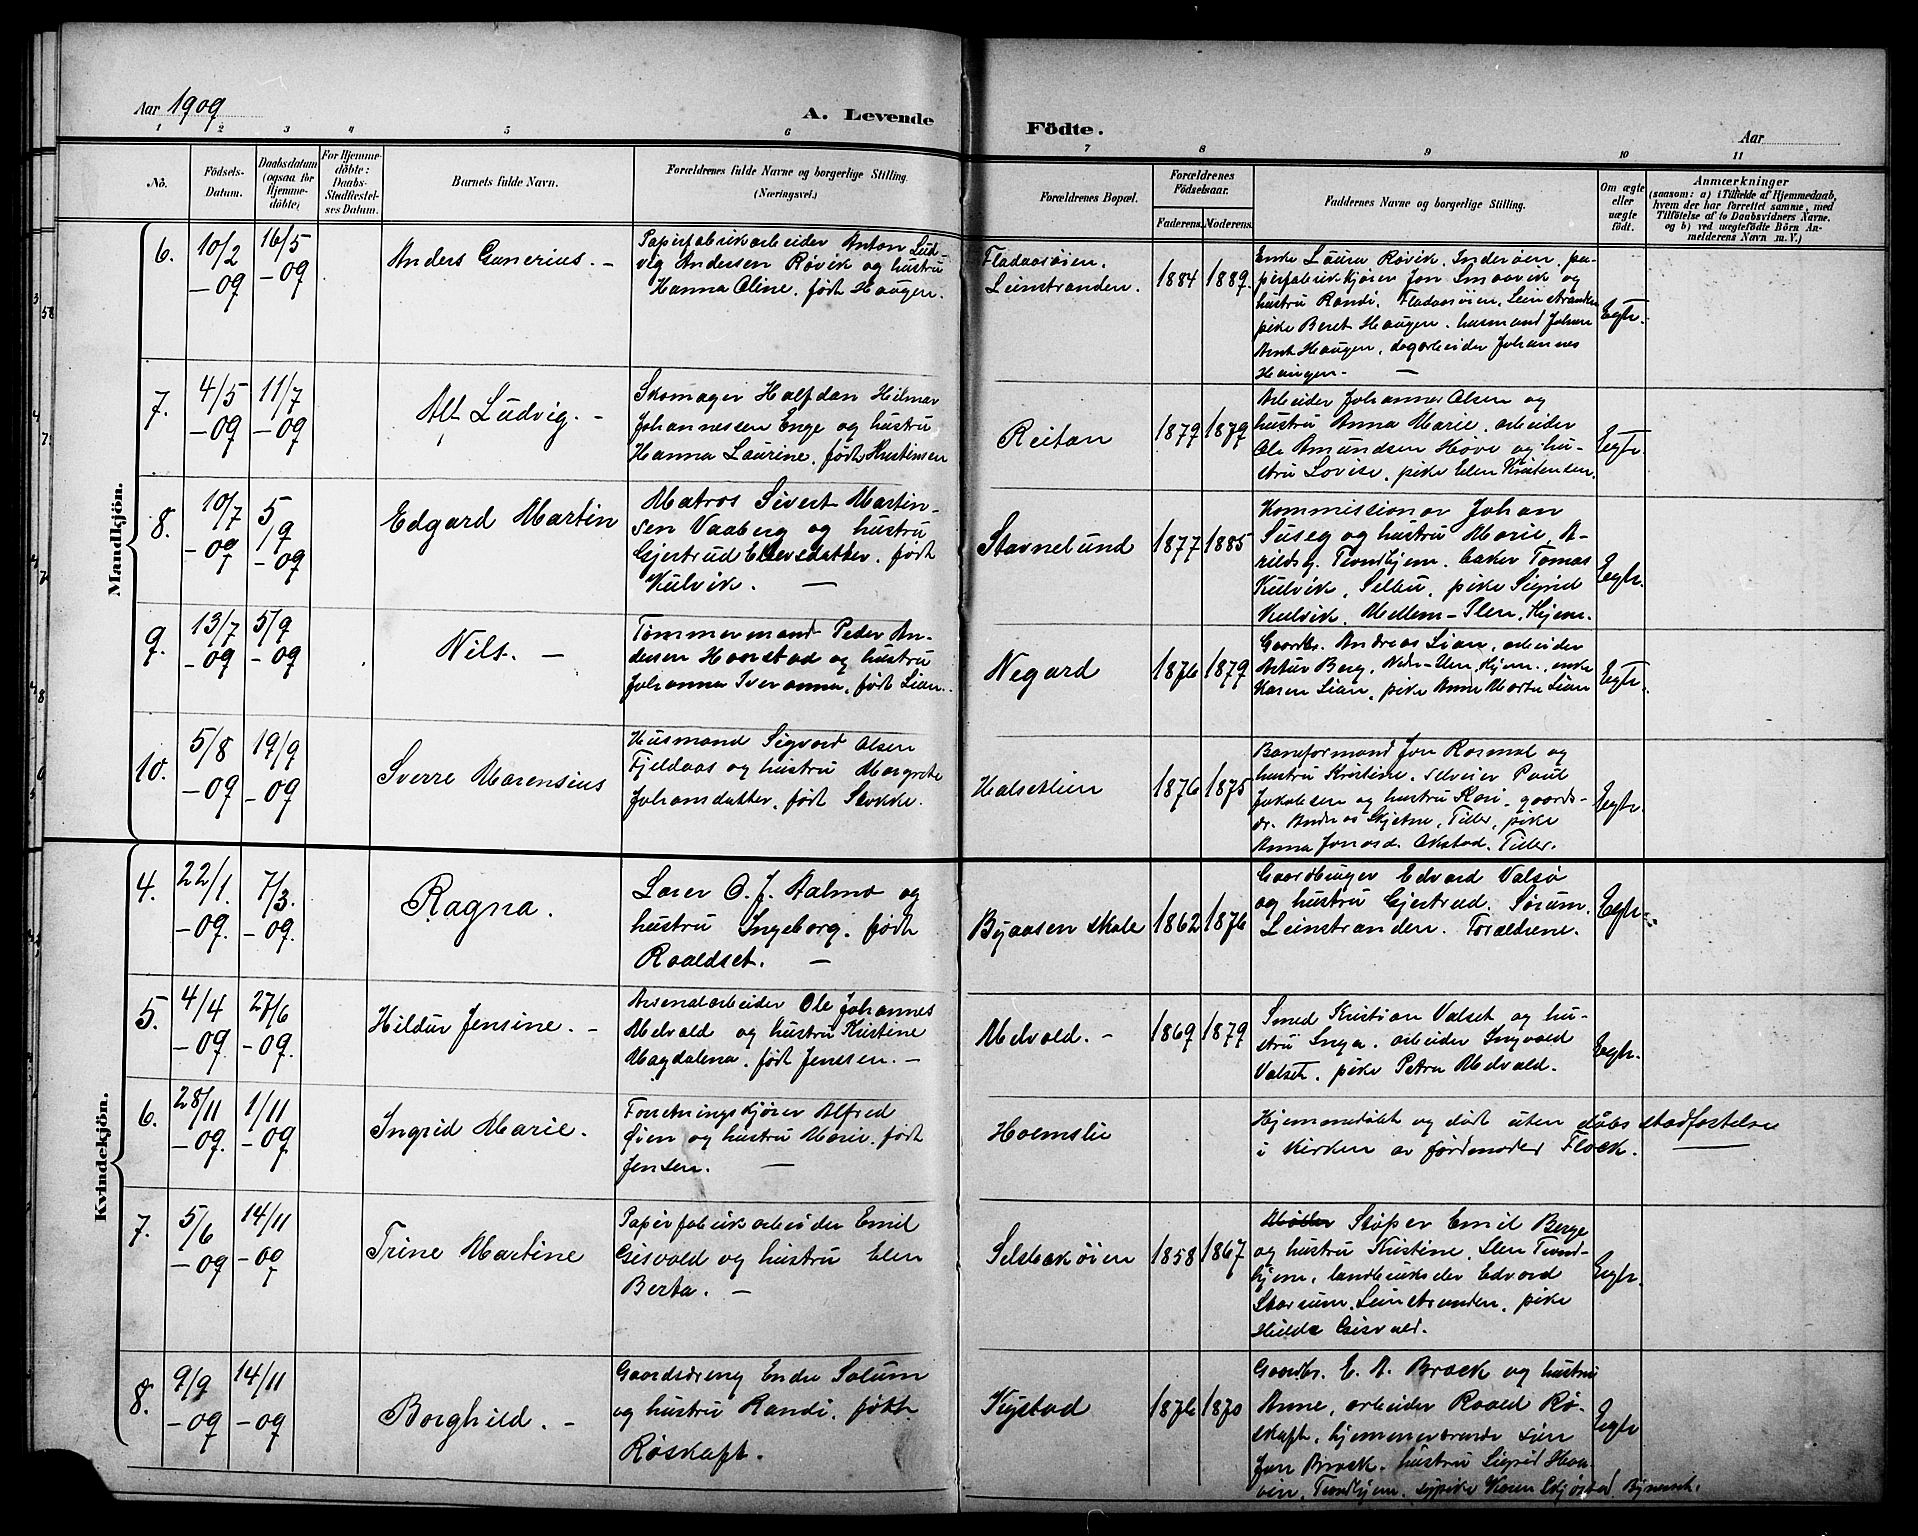 Aar 1909
A. Levende Födte.
Aar
1 2 3 4 5 6 7 8 9 10 11
No.
Födsels-Datum.
Daabsdatum (ogsaa for Hjemme-döbte)
For Hjemme-döbte: Daabs-Stadfæstel-ses Datum.
Barnets fulde Navn.
Forældrenes fulde Navne og borgerlige Stilling. (Næringsvei.)
Forældrenes Bopæl.
Forældrenes Födselsaar.
Faderens. Moderens.
Faddernes Navne og borgerlige Stilling.
Om ægte eller uægte födt.
Anmærkninger
(saasom: a) i Tilfælde af Hjemmedaab,
hvem der har forrettet samme, med
Tilföielse af to Daabsvidners Navne.
og b) ved uægtefödte Börn An-
melderens Navn m. V.)
Mandkjön.
6. 10/2 -09 16/5 -09
Anders Gunerius. -
Papirfabrikarbeider Anton Lud-
vig Andersen Røvik og hustru
Hanna Oline, født Haugen.
Fladaasøien.
Leinstranden.
1884 1889.
Enke Laura Røvik, Inderøen, pa-
pirfabrikkjører Jon Smaavik og
hustru Randi, Fladaasøien, Leinstranden
pike Beret Haugen, husmand Johan
Arnt Haugen, dagarbeider Johannes
Haugen. -
Egte.
7. 4/5 -09 11/7 -09
Alf Ludvig. -
Skomager Halfdan Hilmar
Johannessen Enge og hustru
Hanna Laurine, født Kristensen
Reitan
1879 1879
Arbeider Johannes Olsen og
hustru Anna Marie, arbeider
Ole Amundsen Hove og hu-
stru Lovise, pike Elen Kristensen.
Egte
8. 10/7 -09 5/9 -09
Edgard Martin
Matros Sivert Martin-
sen Vaaberg og hustru
Gjertrud Ellevsdatter, født
Kulvik. -
Stavnelund
1877 1885
Kommissionær Johan
Suseg og hustru Marie, A-
rildsg. Trondhjem. baker Tomas
Kulvik, Selbu, pike Sigrid
Kulvik, Mellem-Ilen, Hjem.
Egte.
9. 13/7 -09 5/9 -09
Nils. -
Tømmermand Peder An-
dersen Haarstad og hustru
Johanna Iveranna, født Lian.
Negard
1876 1879
Gaardbr. Andreas Lian, arbeider
Artur Berg, Nedre-Ilen, Hjem., enke
Karen Lian, pike Anne Marte Lian
Egte.
10. 5/8 -09 19/9 -09
Sverre Marensius
Husmand Sigvard Olsen
Fjeldaas og hustru Margrete
Johansdatter, født Stokke.
Halsetlien
1876 1875
Baneformand Jon Rosmæl og
hustru Kristine, selveier Paul
Jakobsen og hustru Kari, gaards-
dr. Andreas Skjetne, Tiller, pike
Anna Jonsd. Okstad, Tiller.
Egte.
Kvindekjön.
4. 22/1. -09. 7/3. -09.
Ragna.
Lærer O. J. Aalmo og
hustru Ingeborg, født
Roaldset. -
Byaasen skole
1862 1876
Gaardbruger Edvard Valsø
og hustru Gjertrud, Sørum,
Leinstranden. Forældrene.
Egte.
5. 4/4 -09. 27/6 -09.
Hildur Jensine. -
Arsenalarbeider Ole Johannes
Melvold og hustru Kristine
Magdalena, født Jenssen. -
Melvold. -
1869 1879
Smed Kristian Valset og hu-
stru Inga, arbeider Ingvald
Valset, pike Petra Melvald.
Egte.
6. 28/11 -09. 1/11 -09.
Ingrid Marie.
Forretningskjører Alfred
Øien og hustru Marie, født
Jensen. -
Holmslie
Hjemmedøbt og død uten dåbs stadfæstelse
i kirken av jordmoder Flock.
7. 5/6 -09 14/11 -09
Trine Martine
Papirfabrikarbeider Emil
Gisvold og hustru Elen
Berta. -
Selsbakøien
1858 1867
Støper Emil Berge
og hustru Kristine, Ilen Trond-
hjem, landbruksdr. Edvard
Storsum, Leinstranden, pike
Hilda Gisvold.
Egte.
8. 9/9 -09 14/11 -09
Borghild. -
Gaardsdreng Endre Solum
og hustru Randi, født
Røskaft.
Kystad
1876 1870
Gaardbr. E. A. Brock og hustru
Anne, arbeider Roald Rø-
skaft, hjemmeværende søn
Jon Brock, hustru Sigrid Hau-
Trondhjem, sypike Karen Skjøstad, Bynesset.
Egte